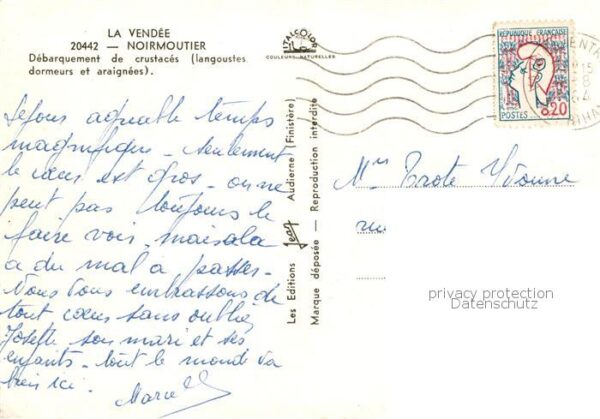 LA VENDÉE
20442 — NOIRMOUTIER
Débarquement de crustacés (langoustes
dormeurs et araignées).
ITALCOLOR
COULEURS NATURELLES
Séjour agréable temps
magnifique - seulement
le cœur est gros - on ne
peut pas toujours le
faire voir, mais cela
a du mal à passer -
Nous vous embrassons de
tout cœur sans oublier
Josette son mari et ses
enfants - tout le monde va
bien ici.
Marcel
Les Editions Jean Audierne (Finistère)
Marque déposée — Reproduction interdite
REPUBLIQUE FRANÇAISE
0,20
POSTES
Mme Trote Yvonne
privacy protection
Datenschutz